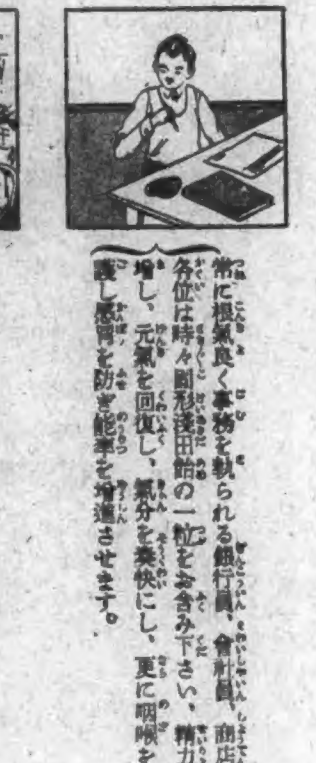 常に根氣良く事務を執られる銀行員、會計員、商店
各位は時々固形淺田飴の一粒をお含み下さい、精力
増し、元氣を回復し、氣分を爽快にし、更に咽喉を
護し感冒を防ぎ能率を増進させます。